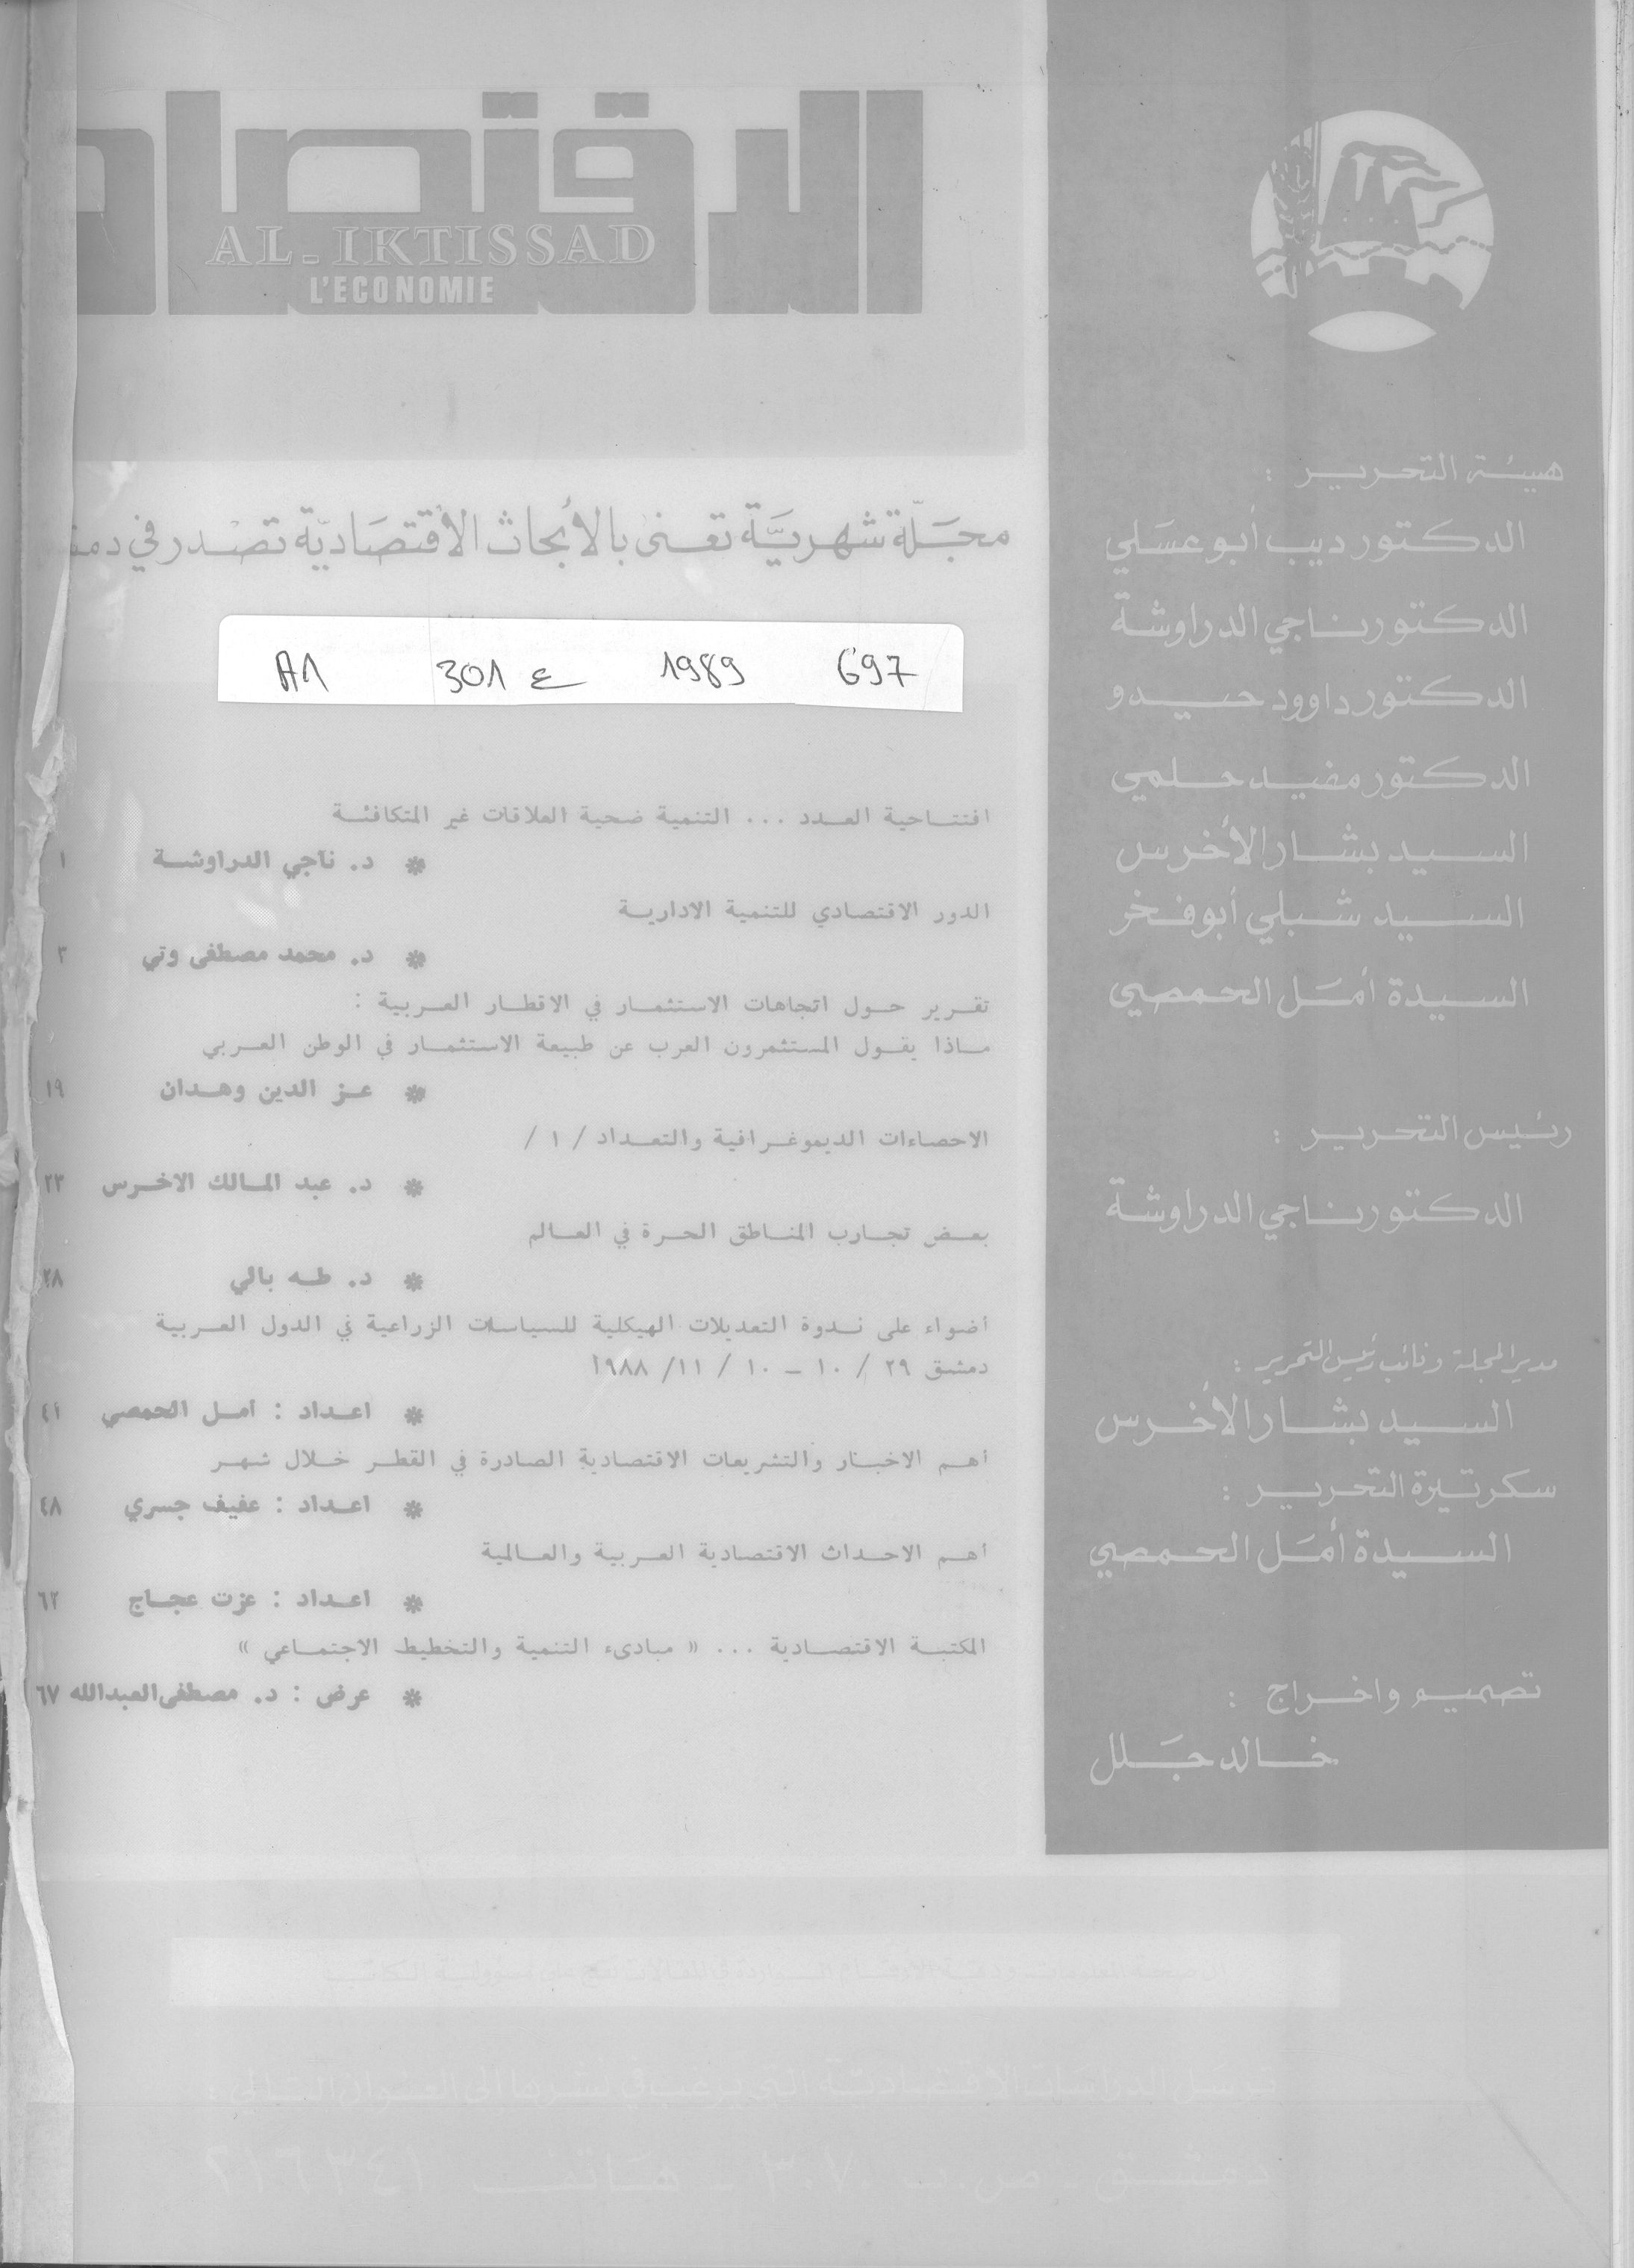 الاقتصاد
AL-IKTISSAD
L'ECONOMIE
مجلة شهرية تعنى بالأبحاث الاقتصادية تصدر في
A1 301 ع 1989 697
افتتاحية العدد ... التنمية ضحية العلاقات غير المتكافئة
* د. ناجي الدراوشة ١
الدور الاقتصادي للتنمية الادارية
* د. محمد مصطفى وتي ٣
تقرير حول اتجاهات الاستثمار في الاقطار العربية :
ماذا يقول المستثمرون العرب عن طبيعة الاستثمار في الوطن العربي
* عز الدين وهدان ١٩
الاحصاءات الديموغرافية والتعداد / ١ /
* د. عبد المالك الاخرس ٢٣
بعض تجارب المناطق الحرة في العالم
* د. طه بالي ٢٨
أضواء على ندوة التعديلات الهيكلية للسياسات الزراعية في الدول العربية
دمشق ٢٩ / ١٠ – ١٠ / ١١/ ١٩٨٨
* اعداد : امل الحمصي ٤١
أهم الاخبار والتشريعات الاقتصادية الصادرة في القطر خلال شهر
* اعداد : عفيف جسري ٤٨
أهم الاحداث الاقتصادية العربية والعالمية
* اعداد : عزت عجاج ٦٢
المكتبة الاقتصادية ... « مبادىء التنمية والتخطيط الاجتماعي »
* عرض : د. مصطفى العبدالله ٦٧
هيئة التحرير :
الدكتور ديب أبو عسلي
الدكتور ناجي الدراوشة
الدكتور داوود حيدو
الدكتور مفيد حلمي
السيد بشار الأخرس
السيد شبلي أبو فخر
السيدة أمل الحمصي
رئيس التحرير :
الدكتور ناجي الدراوشة
مدير المجلة ونائب رئيس التحرير :
السيد بشار الأخرس
سكرتيرة التحرير :
السيدة أمل الحمصي
تصميم واخراج :
خالد جلل
ترسل الدراسات الاقتصادية التي يرغب في نشرها إلى العنوان التالي :
دمشق - ص.ب
هاتف